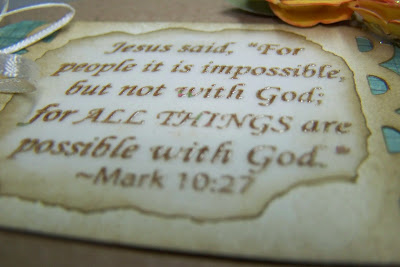 Jesus said, "For
people it is impossible,
but not with God;
for ALL THINGS are
possible with God."
~Mark 10:27